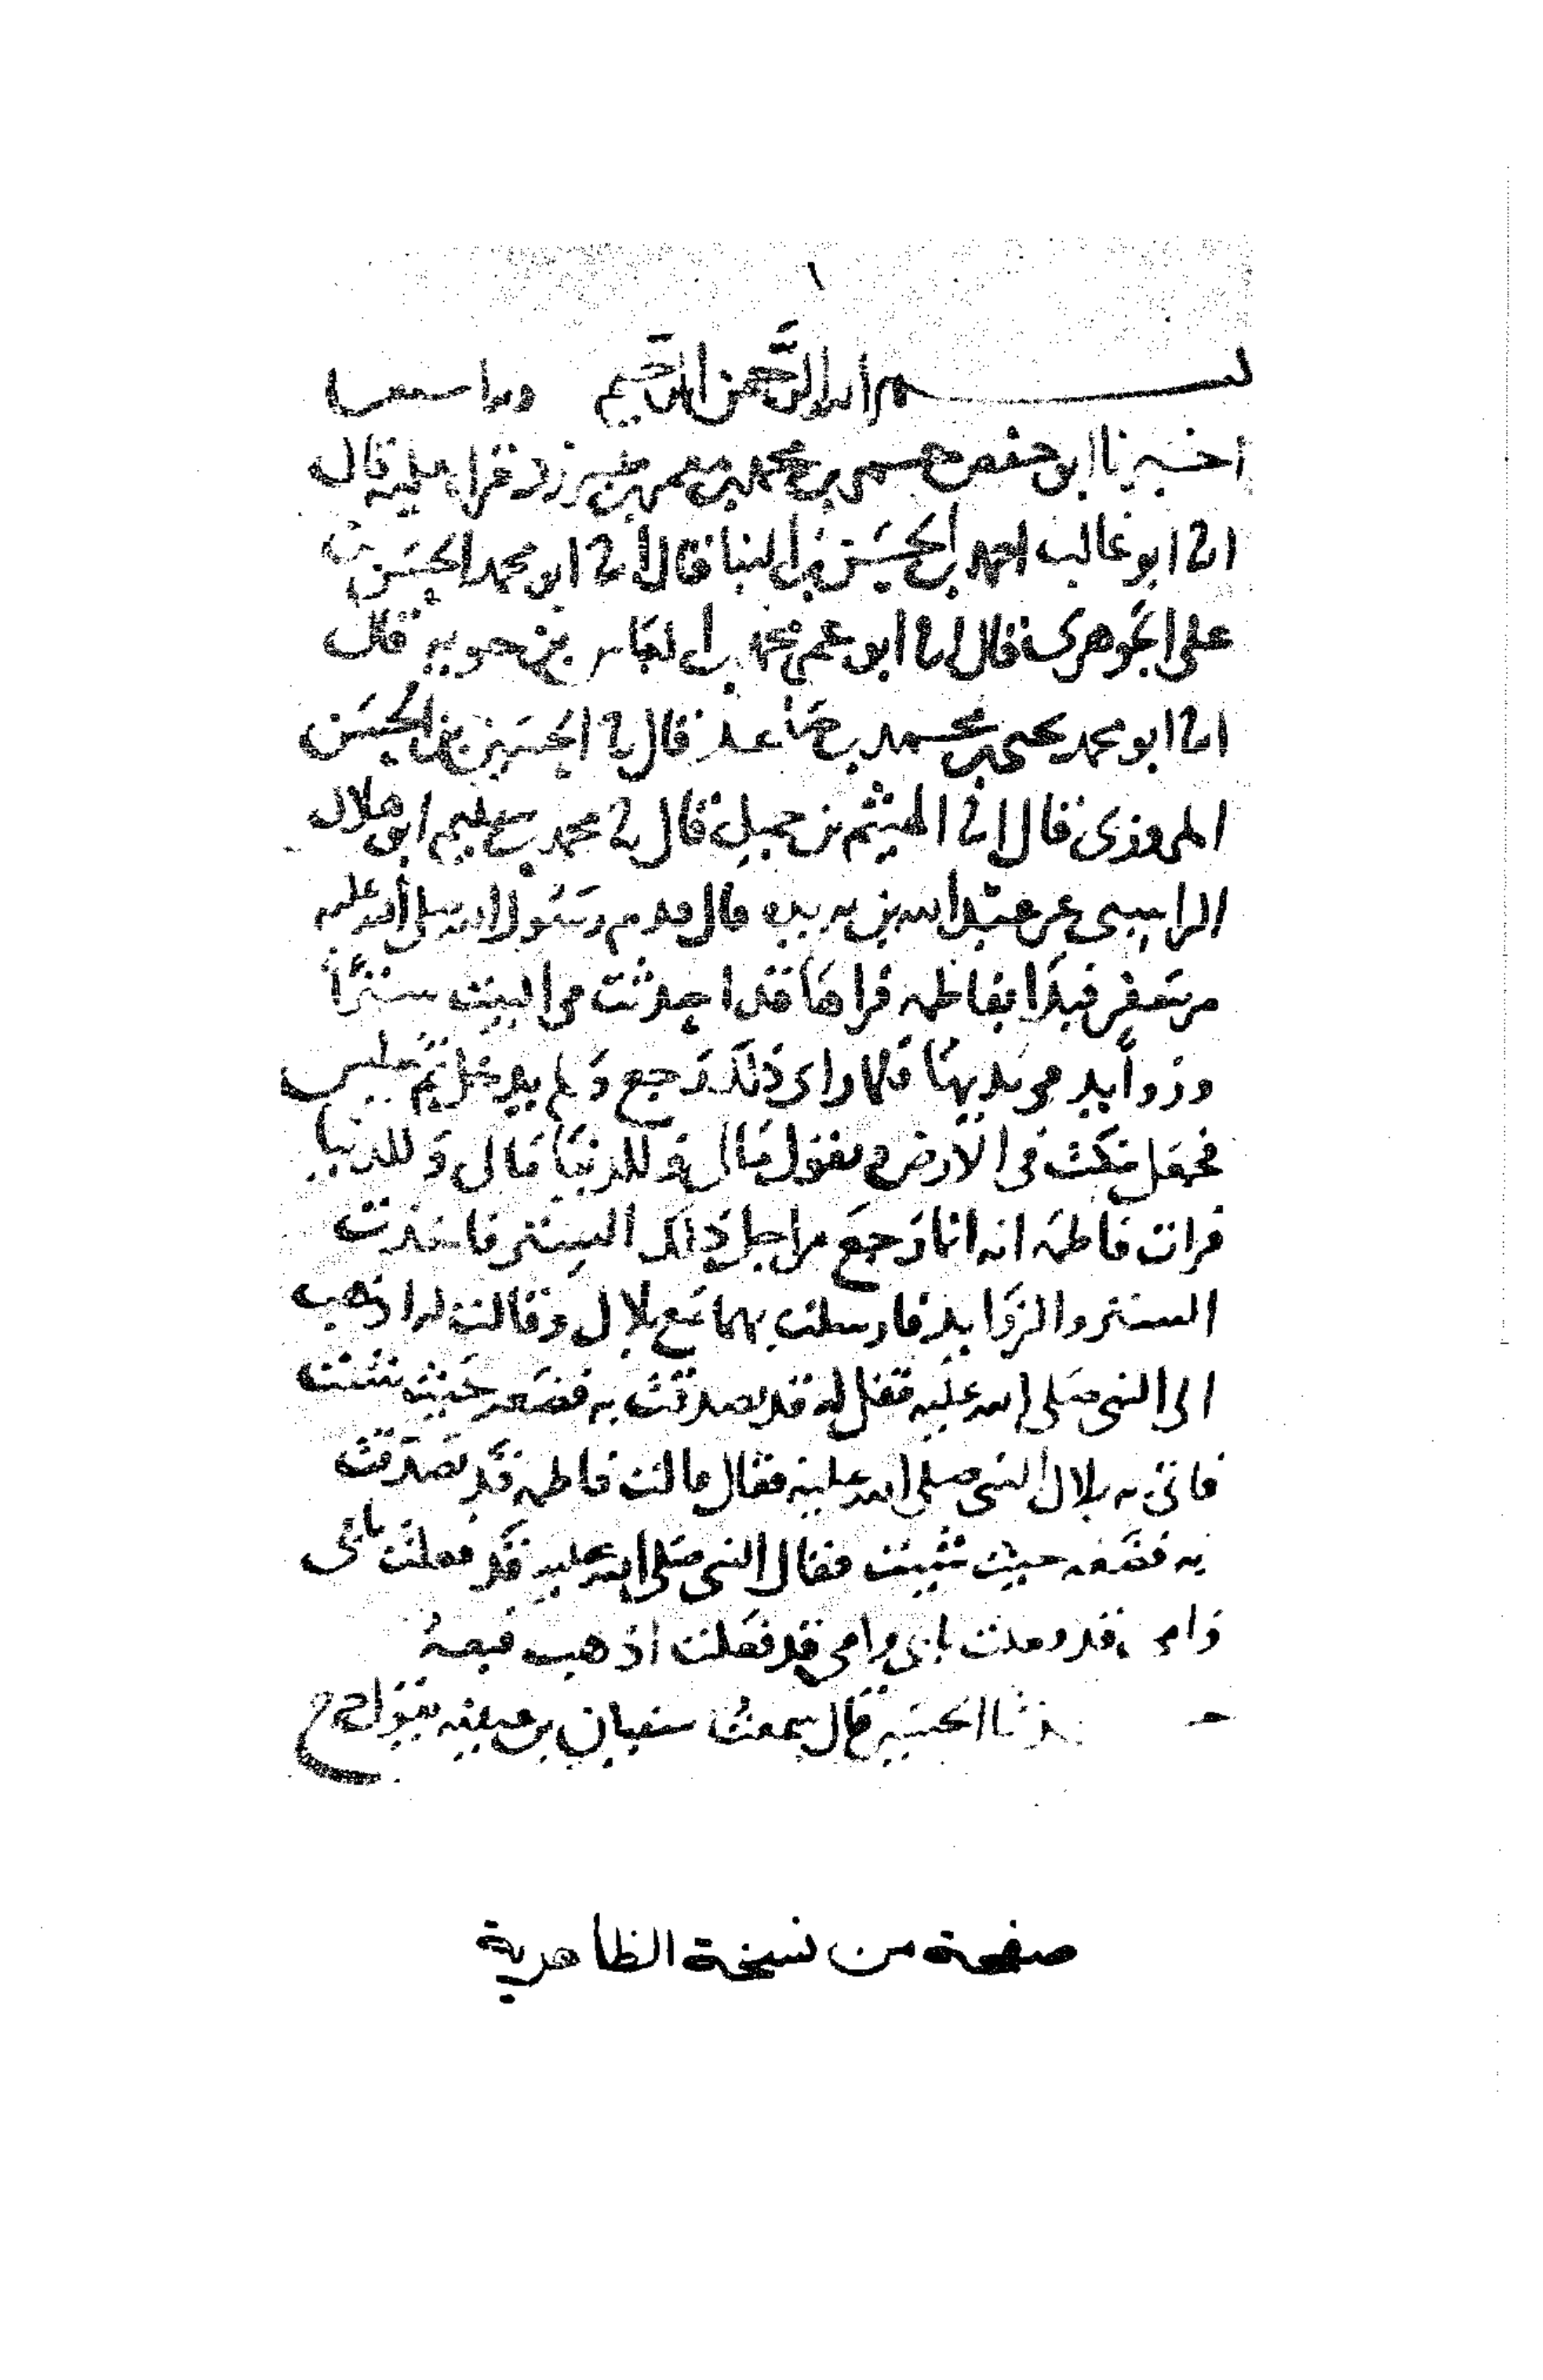 ١
بسم الله الرحمن الرحيم وبه استعين
اخبرنا ابو حفص عمر بن محمد بن معمر بن طبرزد قراه عليه قال
انا ابو غالب احمد بن الحسن بن البنا قال انا ابو محمد الحسن بن
على الجوهرى قال انا ابو عمر محمد بن العباس بن حيويه قال
انا ابو محمد يحيى بن محمد بن صاعد قال نا الحسين بن الحسن
المروزى قال انا الهيثم بن جميل قال نا محمد بن سليم ابو هلال
الراسبى عن عبد الله بن بريده قال قدم رسول الله صلى الله عليه
من سفر فبدا بفاطمه فراها قد احدثت فى البيت سترًا
وزوايد فى يديها فلما راى ذلك رجع ولم يدخل ثم جلس
فجعل ينكت فى الأرض ويقول مالى وللدنيا مالى وللدنيا
فرات فاطمه انه انما رجع من اجل ذلك الستر فاخذت
الستر والزوايد فارسلت بهما مع بلال وقالت له اذهب
الى النبى صلى الله عليه فقل له قد تصدقت به فضعه حيث شئت
فاتى به بلال النبى صلى الله عليه فقال قالت فاطمه قد تصدقت
به فضعه حيث شئت فقال النبى صلى الله عليه قد فعلت بابى
وامى قد فعلت بابى وامى قد فعلت اذهب فبعهُ
حدثنا الحسين قال سمعت سفيان بن عيينه يقول
صفحة من نسخة الظاهرية